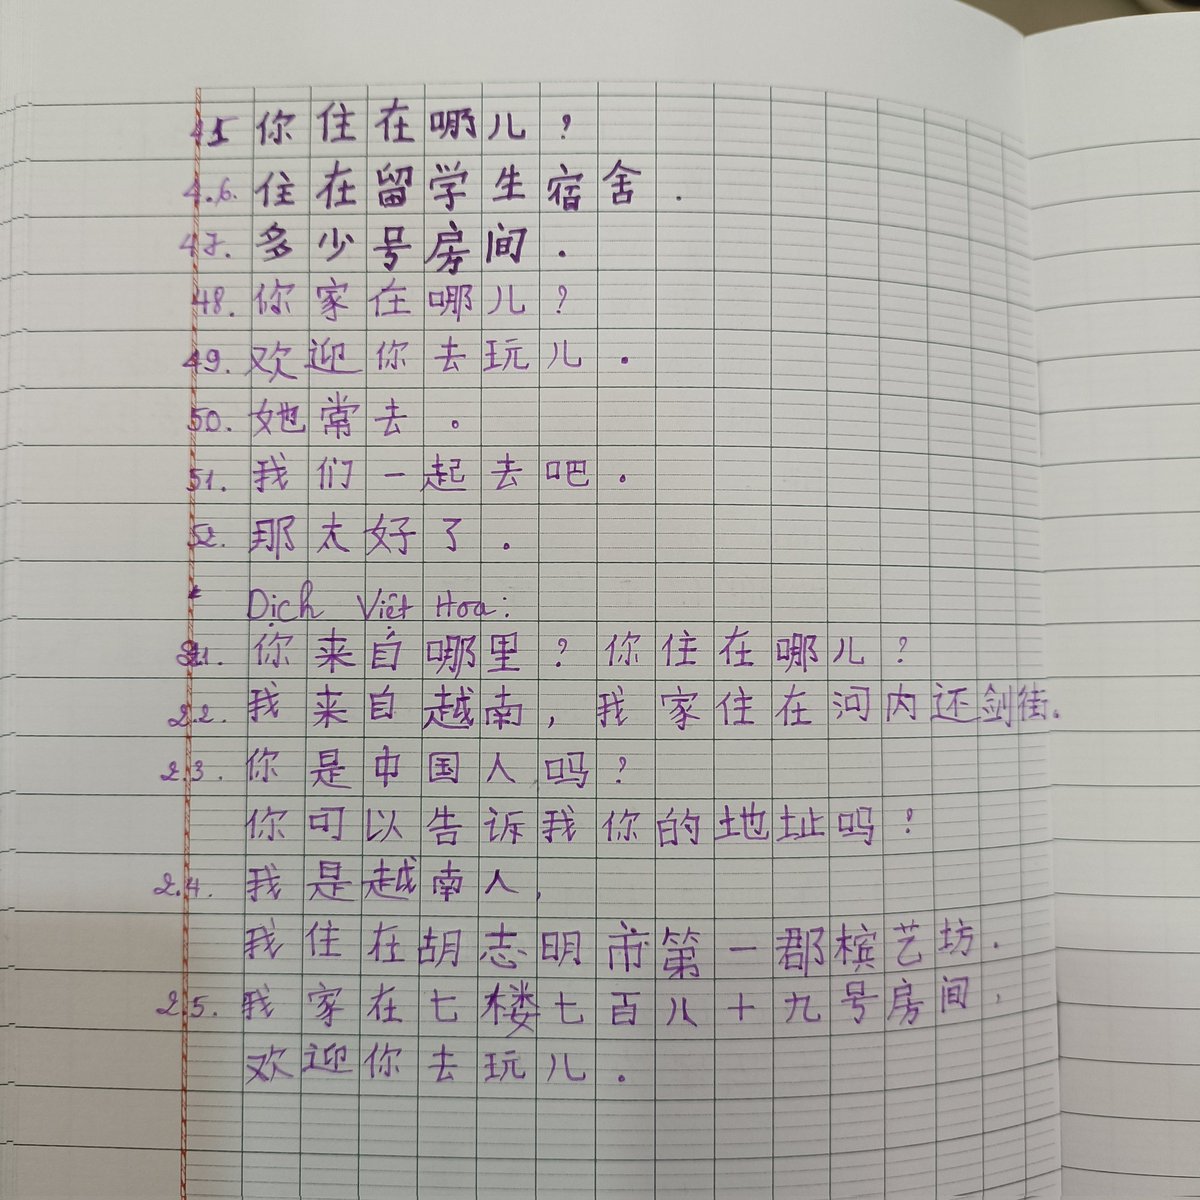 45 你住在哪儿?
4.6. 住在留学生宿舍.
47. 多少号房间.
48. 你家在哪儿?
49. 欢迎你去玩儿.
50. 她常去。
51. 我们一起去吧.
52. 那太好了.
* Dịch Việt Hoa:
2.1. 你来自哪里? 你住在哪儿?
2.2. 我来自越南, 我家住在河内还剑街.
2.3. 你是中国人吗?
你可以告诉我你的地址吗?
2.4. 我是越南人,
我住在胡志明市第一郡槟艺坊.
2.5. 我家在七楼七百八十九号房间,
欢迎你去玩儿.